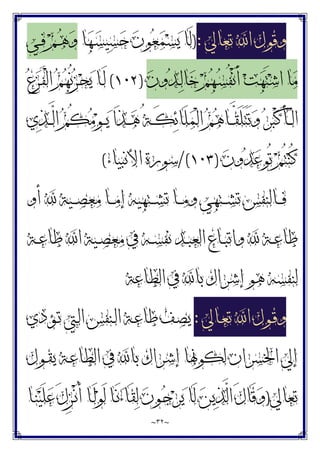 وقول الله تعالى : (لَا يَسْمَعُونَ حَسِيسَهَا وَهُمْ فِي
مَا اشْتَهَتْ أَنْفُسُهُمْ خَالِدُونَ (١٠٢) لَا يَحْزُنُهُمُ الْفَزَعُ
الْأَكْبَرُ وَتَتَلَقَّاهُمُ الْمَلَائِكَةُ هَذَا يَوْمُكُمُ الَّذِي
كُنْتُمْ تُوعَدُونَ (١٠٣) /سورة الأنبياء)
فالنفس تشتهي وما تشتهيه إما معصية لله أو
طاعة لله واتباع العبد نفسه في معصية الله طاعة
لنفسه هو إشراك بالله في الطاعة
وقول الله تعالى : يصف طاعة النفس التي تؤدي
إلى الخسران لكونها إشراك بالله في الطاعة يقول
تعالى (وَقَالَ الَّذِينَ لَا يَرْجُونَ لِقَاءَنَا لَوْلَا أُنْزِلَ عَلَيْنَا
~٣٢~